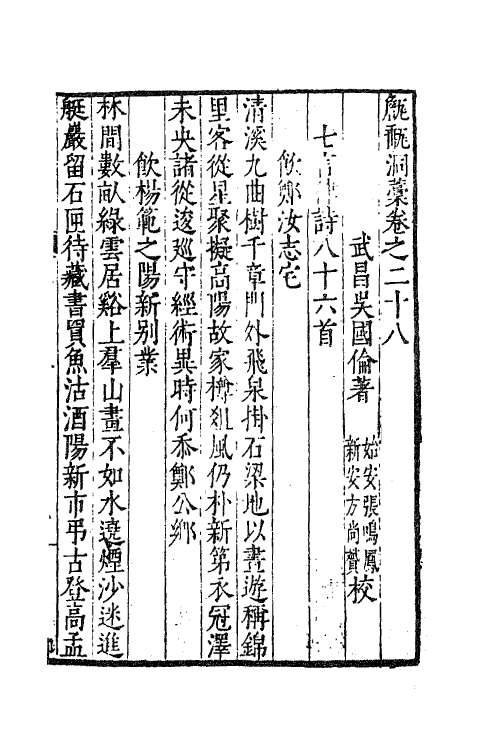 甔甀洞藁卷之二十八
武昌吳國倫著
始安張鳴鳳
新安方尚贇校
七言律詩八十六首
飲鄭汝志宅
清溪九曲樹千章門外飛泉掛石梁地以晝遊稱錦
里客從星聚擬高陽故家樽俎風仍朴新第衣冠澤
未央諸從逡廵守經術異時何忝鄭公鄉
飲楊範之陽新别業
林間數畝綠雲居谿上羣山畫不如水遶煙沙迷進
艇巖留石匣待藏書買魚沽酒陽新市弔古登高孟